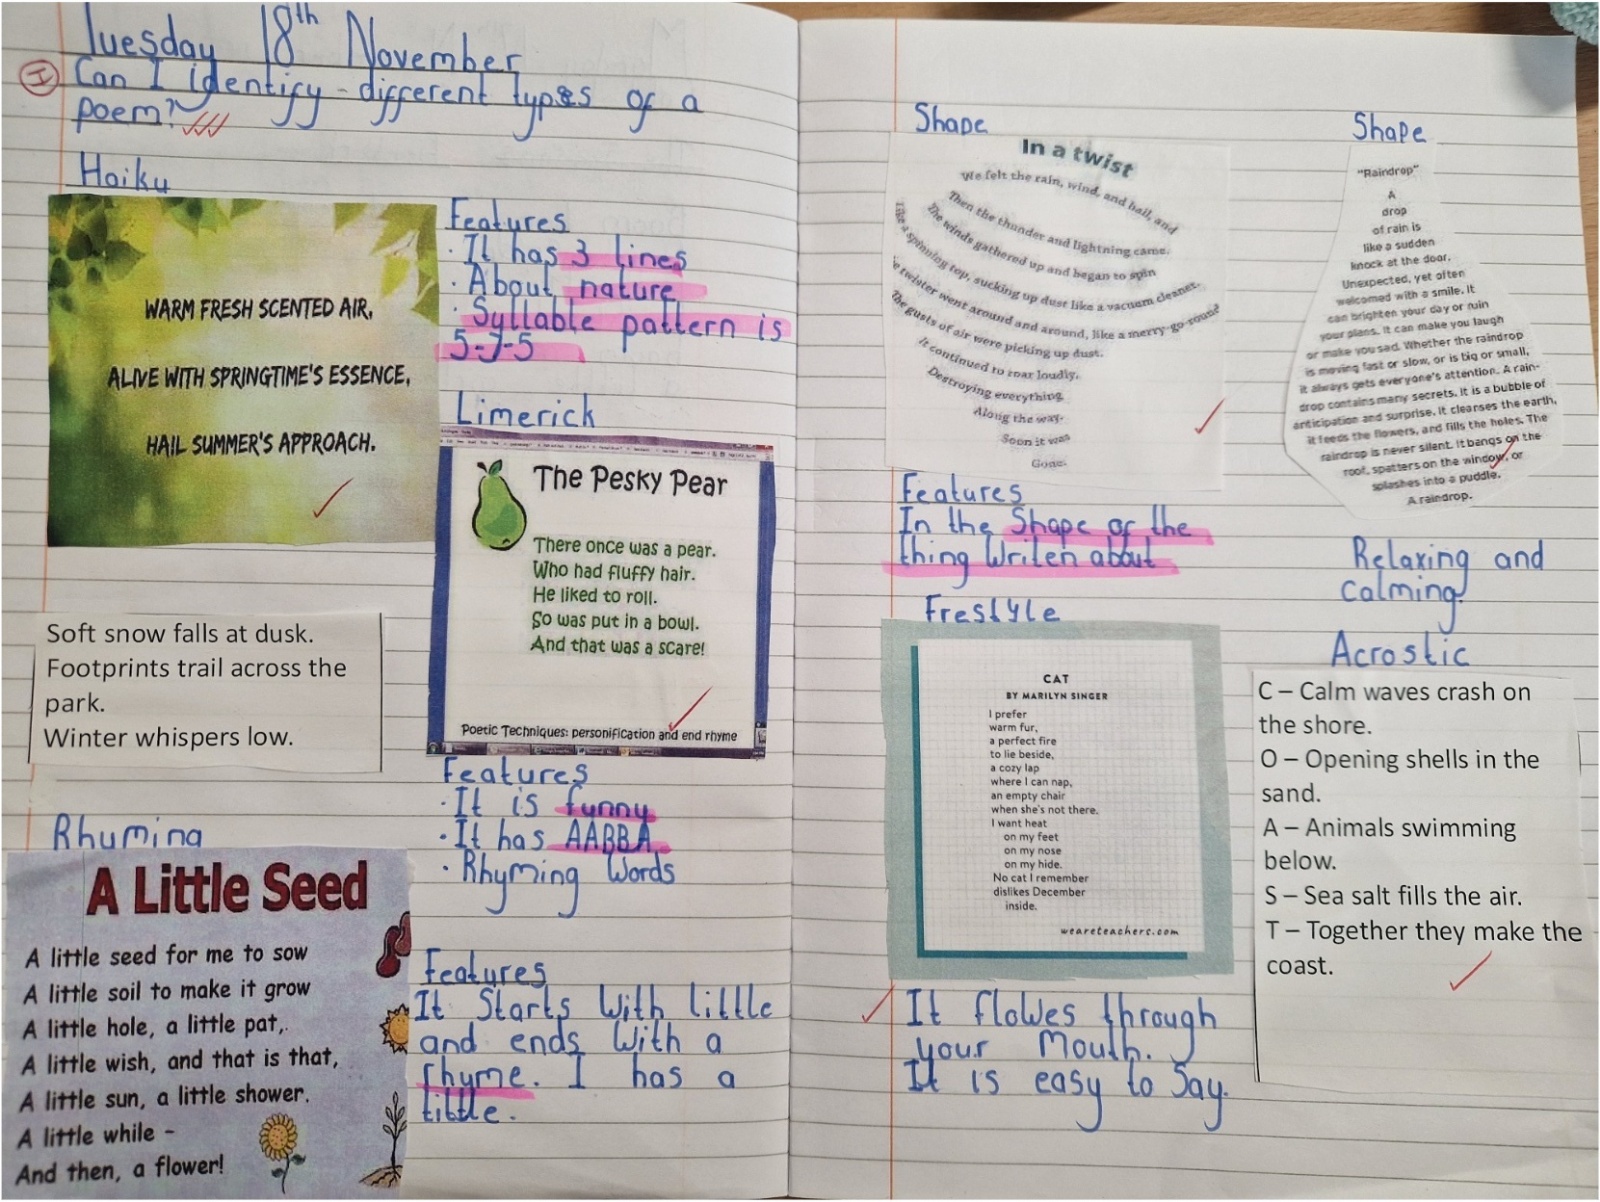 Tuesday 18th November
I Can I identify different types of a
poem?
Haiku
WARM FRESH SCENTED AIR,
ALIVE WITH SPRINGTIME'S ESSENCE,
HAIL SUMMER'S APPROACH.
Features
· It has 3 lines
· About nature
· Syllable pattern is
5-7-5
Limerick
The Pesky Pear
There once was a pear.
Who had fluffy hair.
He liked to roll.
So was put in a bowl.
And that was a scare!
Poetic Techniques: personification and end rhyme
Soft snow falls at dusk.
Footprints trail across the
park.
Winter whispers low.
Features
· It is funny
· It has AABBA
· Rhyming Words
Rhyming
A Little Seed
A little seed for me to sow
A little soil to make it grow
A little hole, a little pat,
A little wish, and that is that,
A little sun, a little shower.
A little while -
And then, a flower!
Features
It Starts With little
and ends With a
rhyme. I has a
tittle.
Shape
In a twist
We felt the rain, wind, and hail, and
Then the thunder and lightning came.
The winds gathered up and began to spin
Like a spinning top, sucking up dust like a vacuum cleaner.
twister went around and around, like a merry-go-round
The gusts of air were picking up dust.
It continued to roar loudly.
Destroying everything
Along the way.
Soon it was
Gone.
Features
In the Shape of the
thing Writen about
Shape
"Raindrop"
A
drop
of rain is
like a sudden
knock at the door.
Unexpected, yet often
welcomed with a smile. It
can brighten your day or ruin
your plans. It can make you laugh
or make you sad. Whether the raindrop
is moving fast or slow, or is big or small,
it always gets everyone's attention. A rain-
drop contains many secrets. It is a bubble of
anticipation and surprise. It cleanses the earth,
it feeds the flowers, and fills the holes. The
raindrop is never silent. It bangs on the
roof, spatters on the window, or
splashes into a puddle.
A raindrop.
Relaxing and
calming.
Frestyle
CAT
BY MARILYN SINGER
I prefer
warm fur,
a perfect fire
to lie beside,
a cozy lap
where I can nap,
an empty chair
when she's not there.
I want heat
on my feet
on my nose
on my hide.
No cat I remember
dislikes December
inside.
weareteachers.com
It flowes through
your Mouth.
It is easy to Say.
Acrostic
C – Calm waves crash on
the shore.
O – Opening shells in the
sand.
A – Animals swimming
below.
S – Sea salt fills the air.
T – Together they make the
coast.